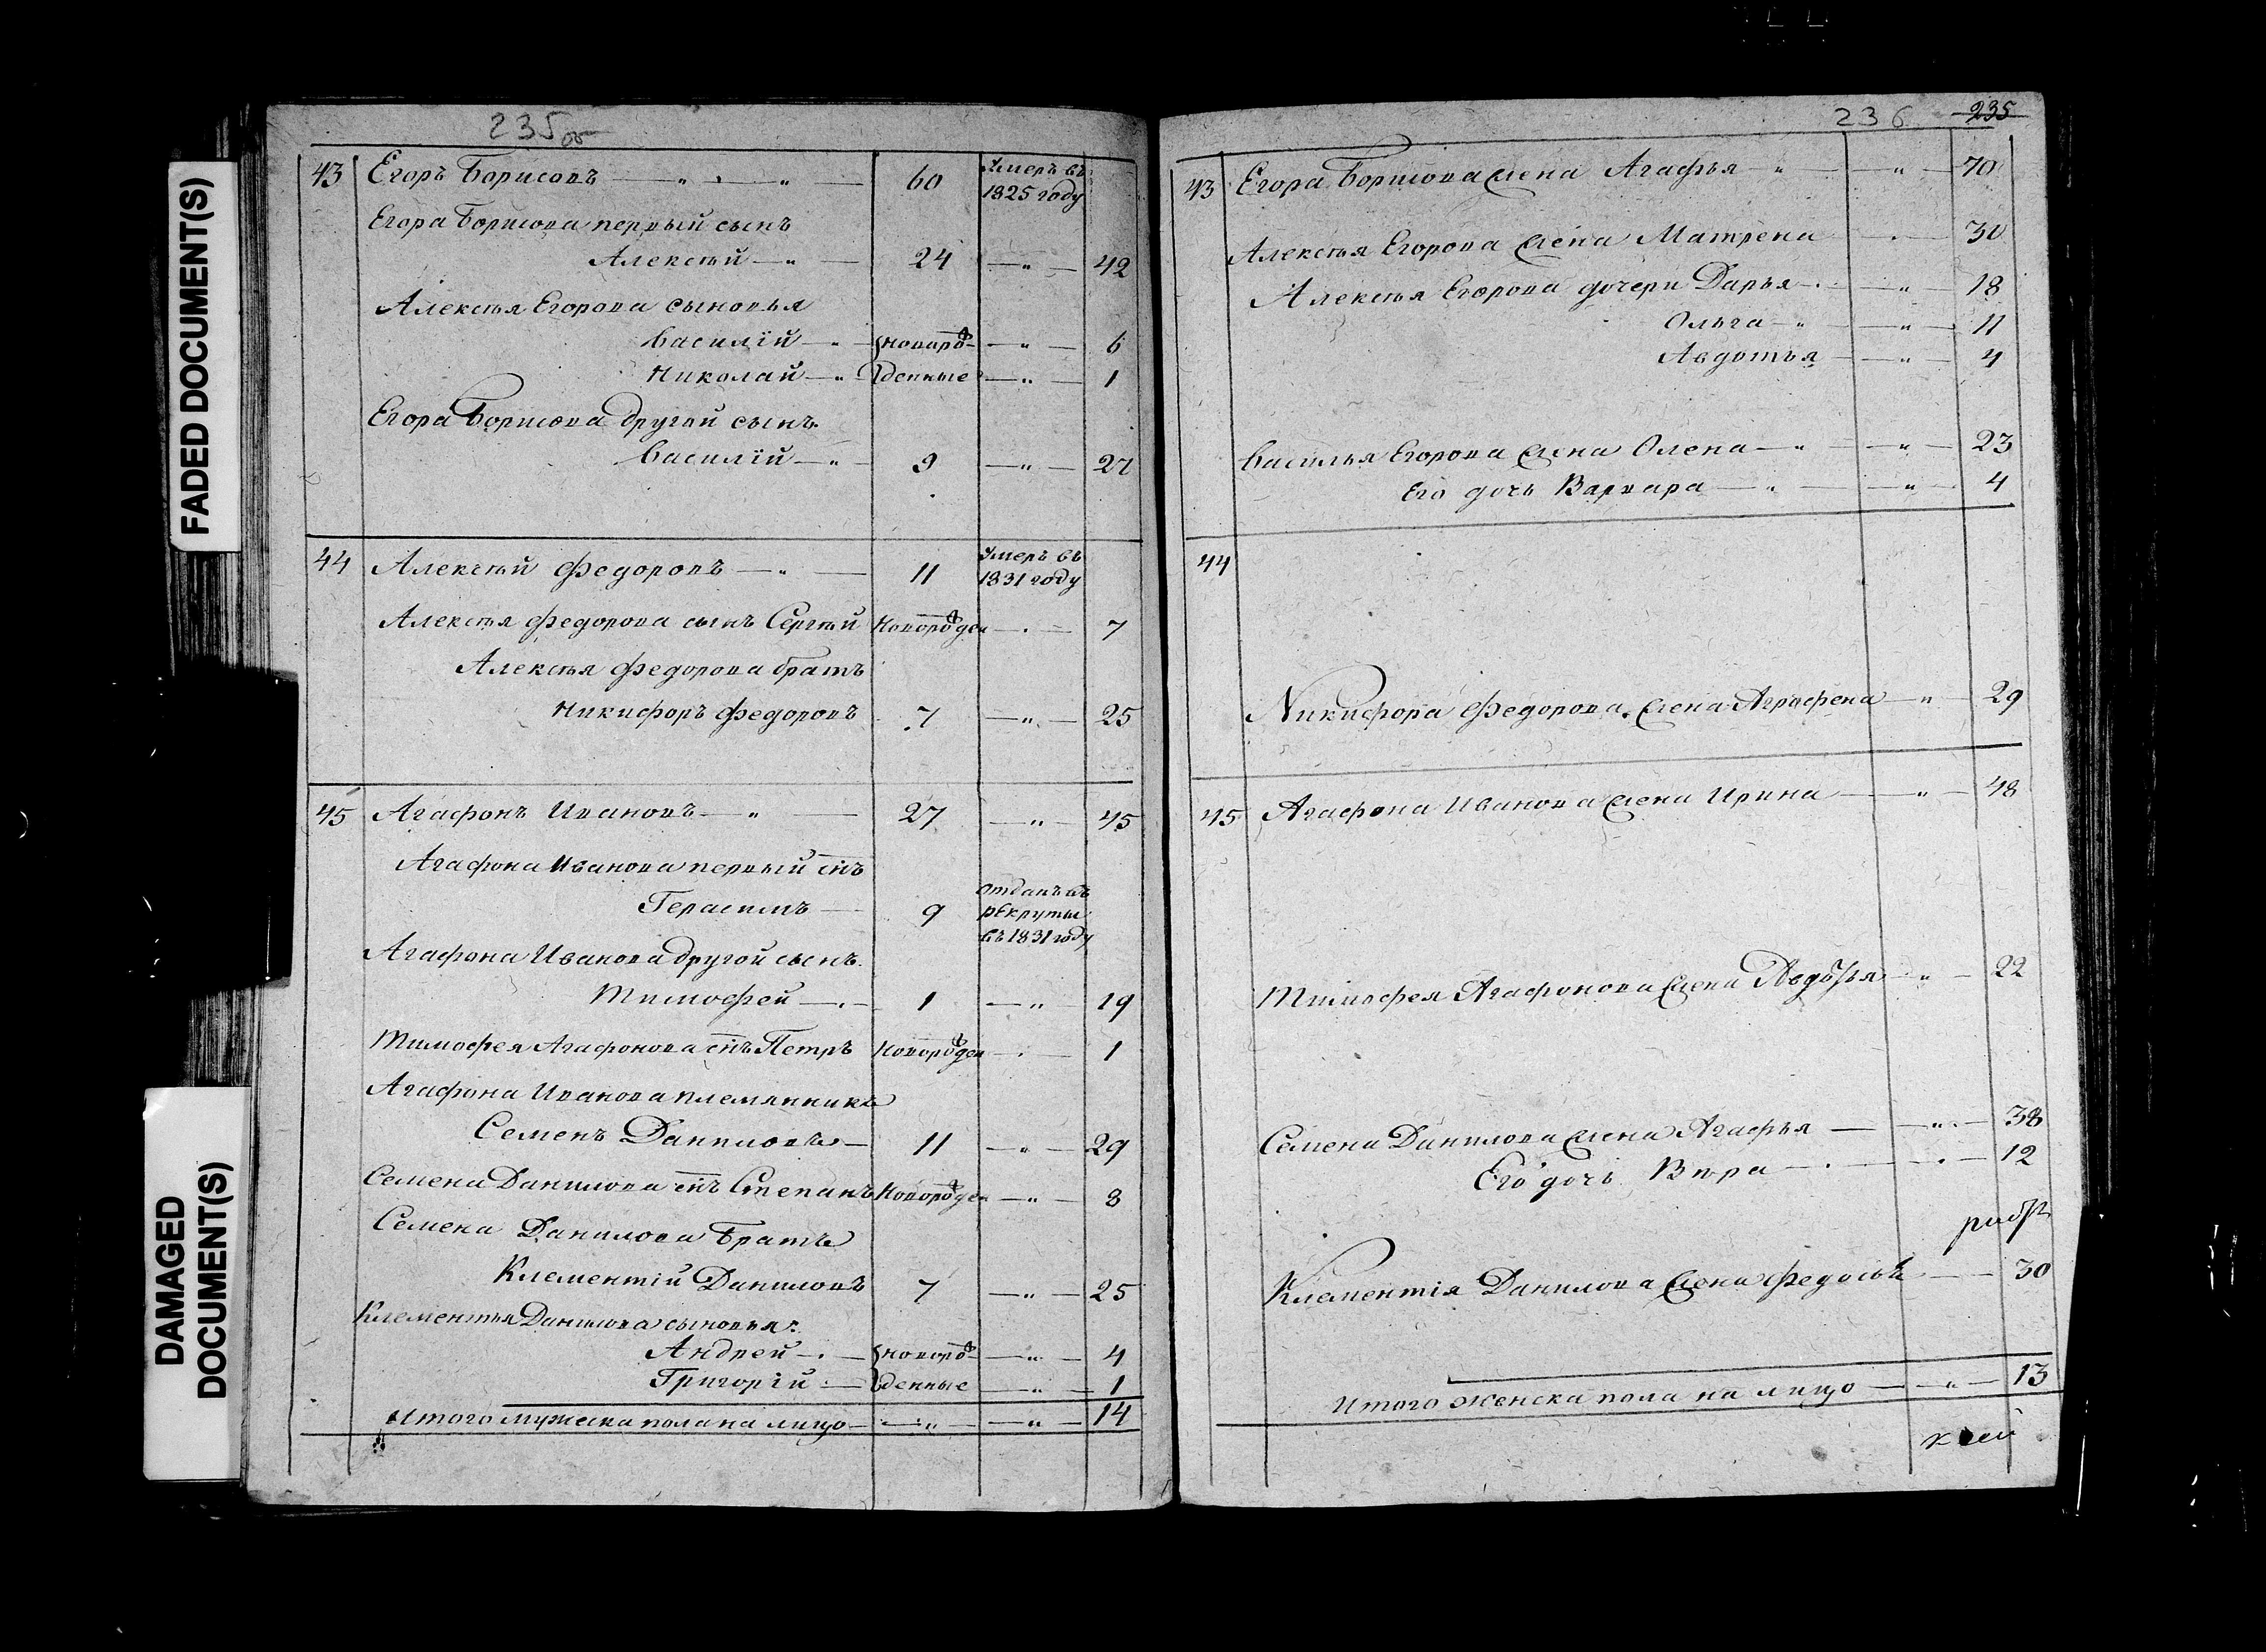 FADED DOCUMENT(S)
DAMAGED DOCUMENT(S)
235об
43 Егоръ Борисовъ — " — " — 60 Умеръ въ 1825 году
Егора Борисова первый сынъ
Алексѣй — " — 24 — " — 42
Алексѣя Егорова сыновья
Василiй — " — новорож- — " — 6
Николай — " — денные — " — 1
Егора Борисова другой сынъ
Василiй — " — 9 — " — 27
44 Алексѣй Федоровъ — " — 11 Умеръ въ 1831 году
Алексѣя Федорова сынъ Сергѣй Новорожден — " — 7
Алексѣя Федорова братъ
Никифоръ Федоровъ 7 — " — 25
45 Агафонъ Ивановъ — " — 27 — " — 45
Агафона Иванова первый снъ
Герасимъ — 9 отданъ въ рекруты въ 1831 году
Агафона Иванова другой сынъ
Тимофей — " — 1 — " — 19
Тимофея Агафонова снъ Петръ Новорожден — " — 1
Агафона Иванова племянникъ
Семенъ Даниловъ — 11 — " — 29
Семена Данилова снъ Степанъ Новорожден — " — 8
Семена Данилова братъ
Клементiй Даниловъ 7 — " — 25
Клементья Данилова сыновья:
Андрей — " — новорож- — " — 4
Григорiй — денные — " — 1
Итого мужеска пола на лицо — " — " — 14
236 235
43 Егора Борисова жена Агафья " — " — 70
Алексѣя Егорова жена Матрена — " — 30
Алексѣя Егорова дочери Дарья — " — 18
Ольга — " — " — 11
Авдотья — " — 4
Василья Егорова жена Олена — " — " — 23
Его дочь Варвара — " — " — 4
44
Никифора Федорова жена Аграфена — " — 29
45 Агафона Иванова жена Ирина — " — 48
Тимофея Агафонова жена Авдотья — " — 22
Семена Данилова жена Агафья — " — 38
Его дочь Вѣра — " — 12
Клементiя Данилова жена Федосья — 30
Итого женска пола на лицо — " — 13